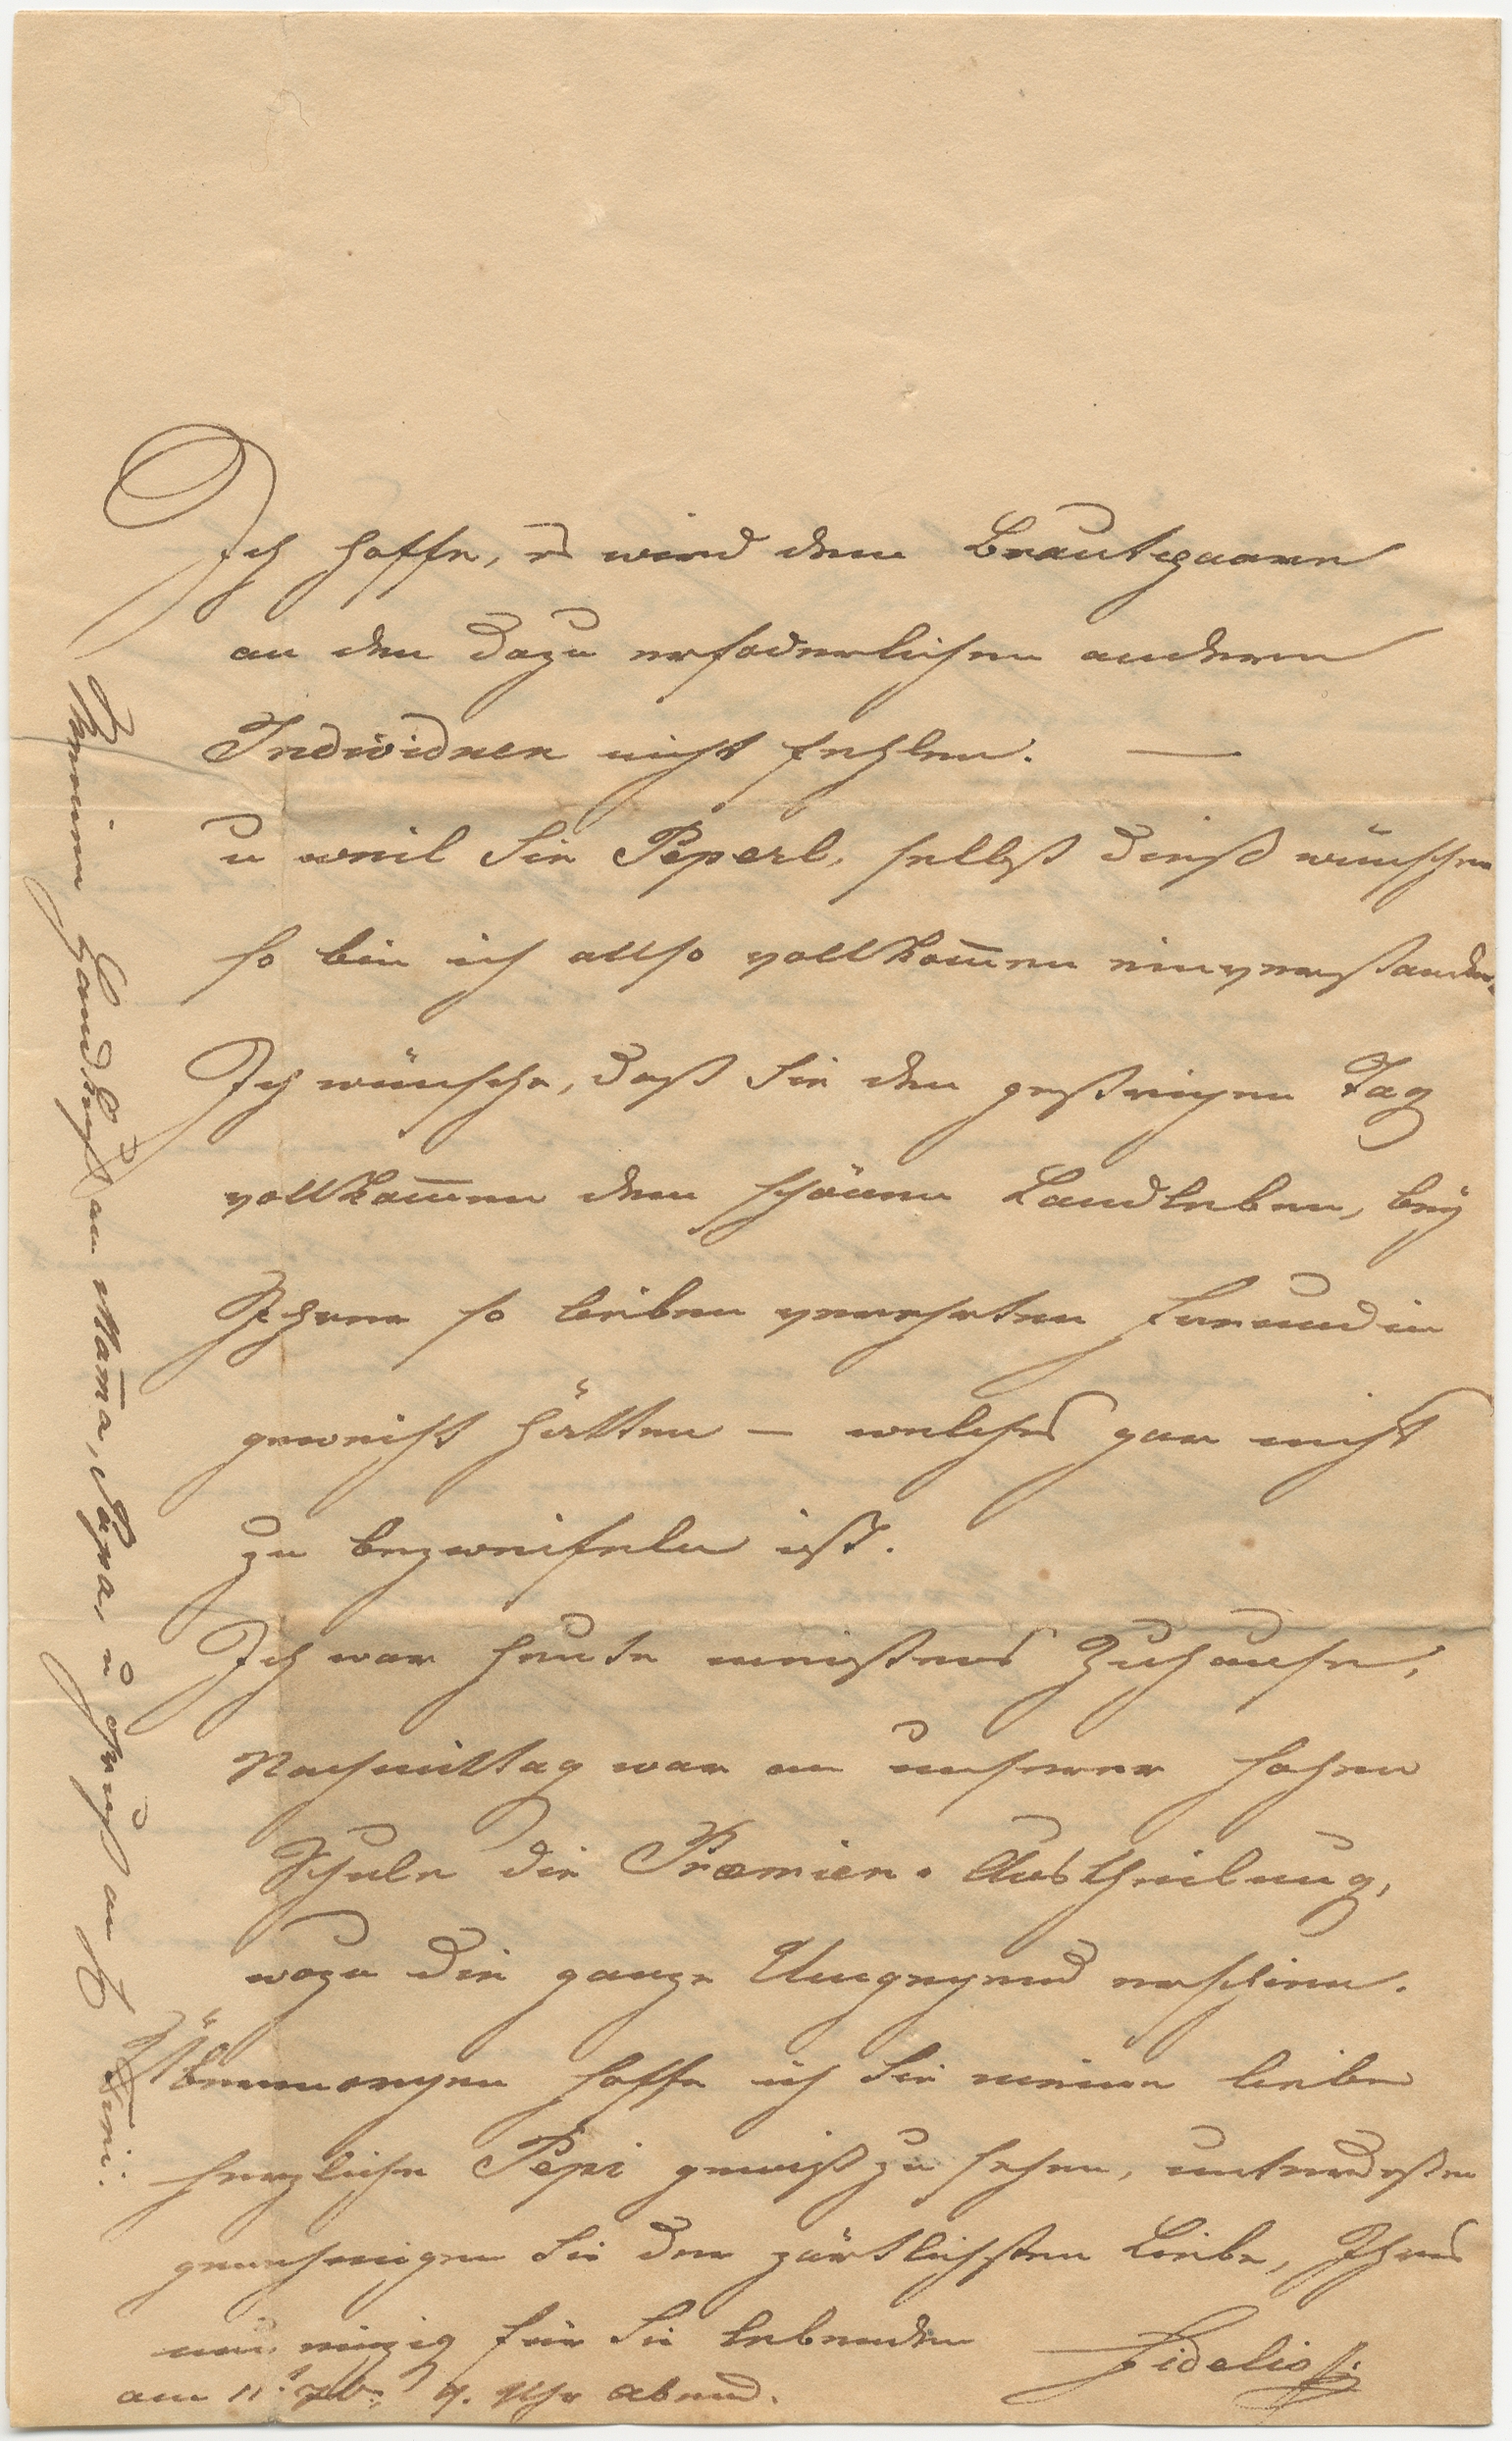 Ich hoffe, es wird dem Brautpaare
an den dazu erfoderlichen andern
Individuen nicht fehlen. —
u weil Sie Peperl, selbst dieß wünschen
so bin ich allso vollkom̅en einverstanden.
Ich wünsche, daß Sie den gestrigen Tag
vollkom̅en dem schönen Landleben, bey
Ihrer so lieben verehrten Freundin
geweiht hätten — welches gar nicht
zu bezweifeln ist.
Ich war heute meistens Zuhause,
Nachmittag war an unserer hohen
Schule die Præmien-Austheilung,
wozu die ganze Umgegend erschien.
Übermorgen hoffe ich Sie meine liebe
herzliche Pepi gewiß zu sehen, unterdeßen
genehmigen Sie den zärtlichsten Liebe, Ihres
nur einzig für Sie lebenden Fidelio
am 11t 7br 9. Uhr abend.
Meinen Handkuß an Mam̅a, Papa, u Gruß an